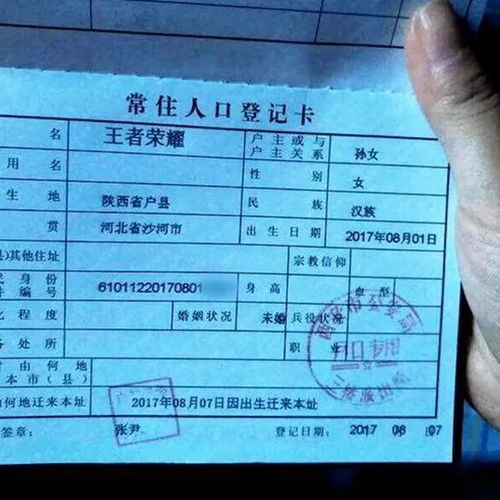 常住人口登记卡
名 王者荣耀 户主或与户主关系 孙女
用名 性别 女
生地 陕西省户县 民族 汉族
贯 河北省沙河市 出生日期 2017年08月01日
县)其他住址 宗教信仰
民身份件编号 61011220170801 身高 血型
化程度 婚姻状况 未婚 兵役状况
务处所 职业
由何地
本市(县)
何地迁来本址 2017年08月07日因出生迁来本址
签章: 张尹 登记日期: 2017 08 07